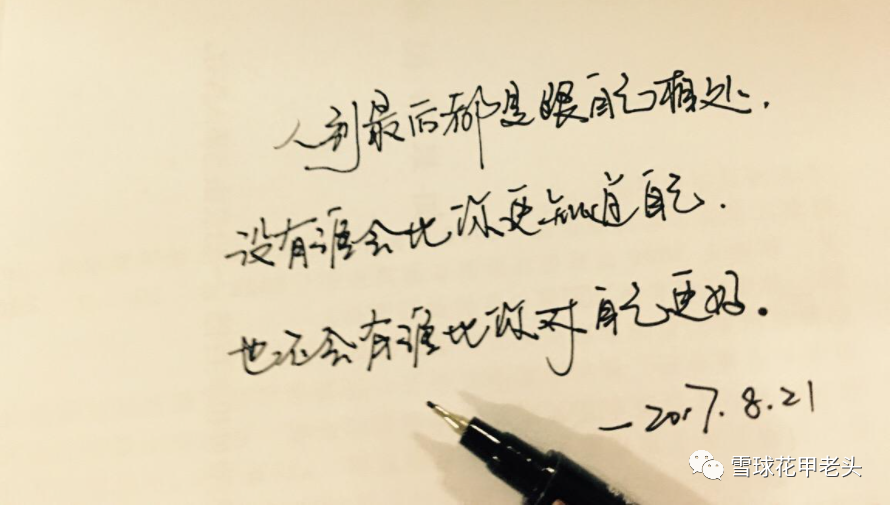 人到最后都是跟自己相处.
没有谁会比你更知道自己.
也不会有谁比你对自己更好。
—2017.8.21
雪球花甲老头